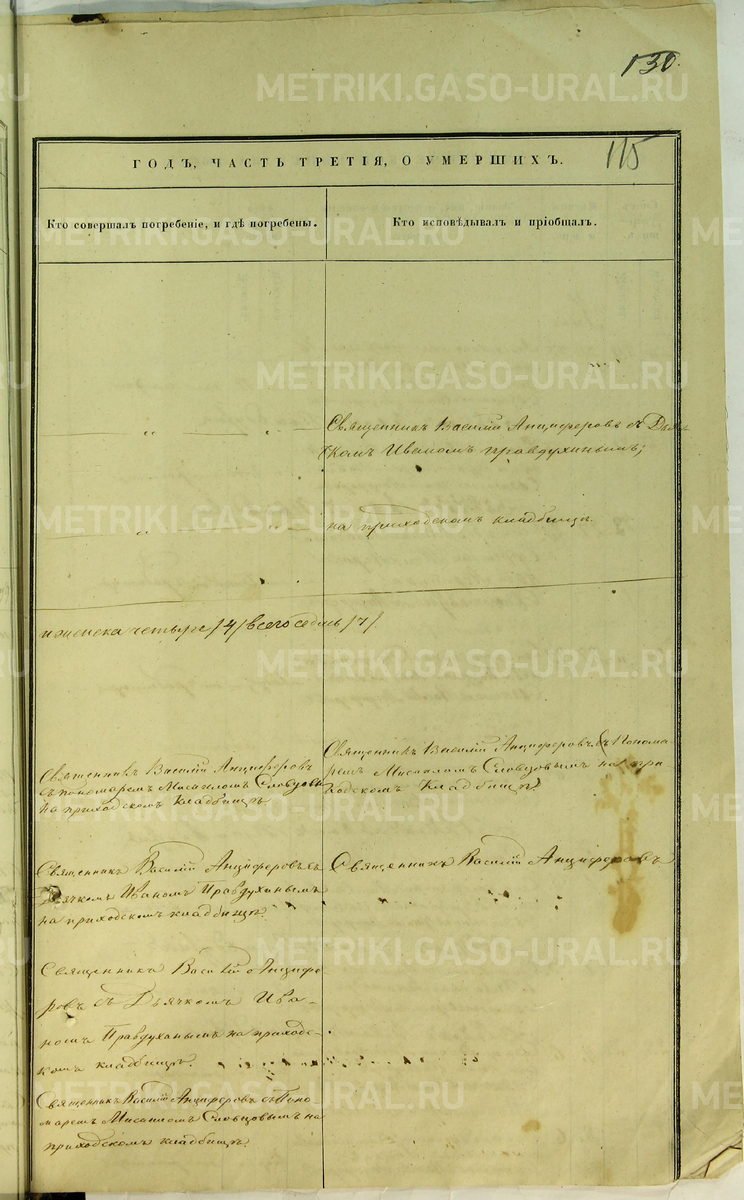 130.
115
ГОДЪ, ЧАСТЬ ТРЕТІЯ, О УМЕРШИХЪ.
Кто совершалъ погребеніе, и гдѣ погребены.
Кто исповѣдывалъ и пріобщалъ.
Священникъ Василій Анциферовъ съ Дьяч
комъ Иваномъ Правдухинымъ;
на приходскомъ кладбищѣ.
и женска четыре /4/ всего седмь /7/
Священникъ Василій Анциферовъ
съ пономаремъ Мисаиломъ Словцовы
на приходскомъ кладбищѣ
Священникъ Василій Анциферовъ съ Понома
ремъ Мисаиломъ Словцовымъ на при
ходскомъ кладбищѣ
Священникъ Василій Анциферовъ съ
Дьячкомъ Иваномъ Правдухинымъ
на приходскомъ кладбищѣ.
Священникъ Василій Анциферовъ
Священникъ Василій Анцифе
ровъ съ Дьячкомъ Ива-
номъ Правдухинымъ на приходс-
комъ кладбищѣ.
Священникъ Василій Анциферовъ съ Поно
маремъ Мисаиломъ Словцовымъ на
приходскомъ кладбищѣ.
METRIKI.GASO-URAL.RU